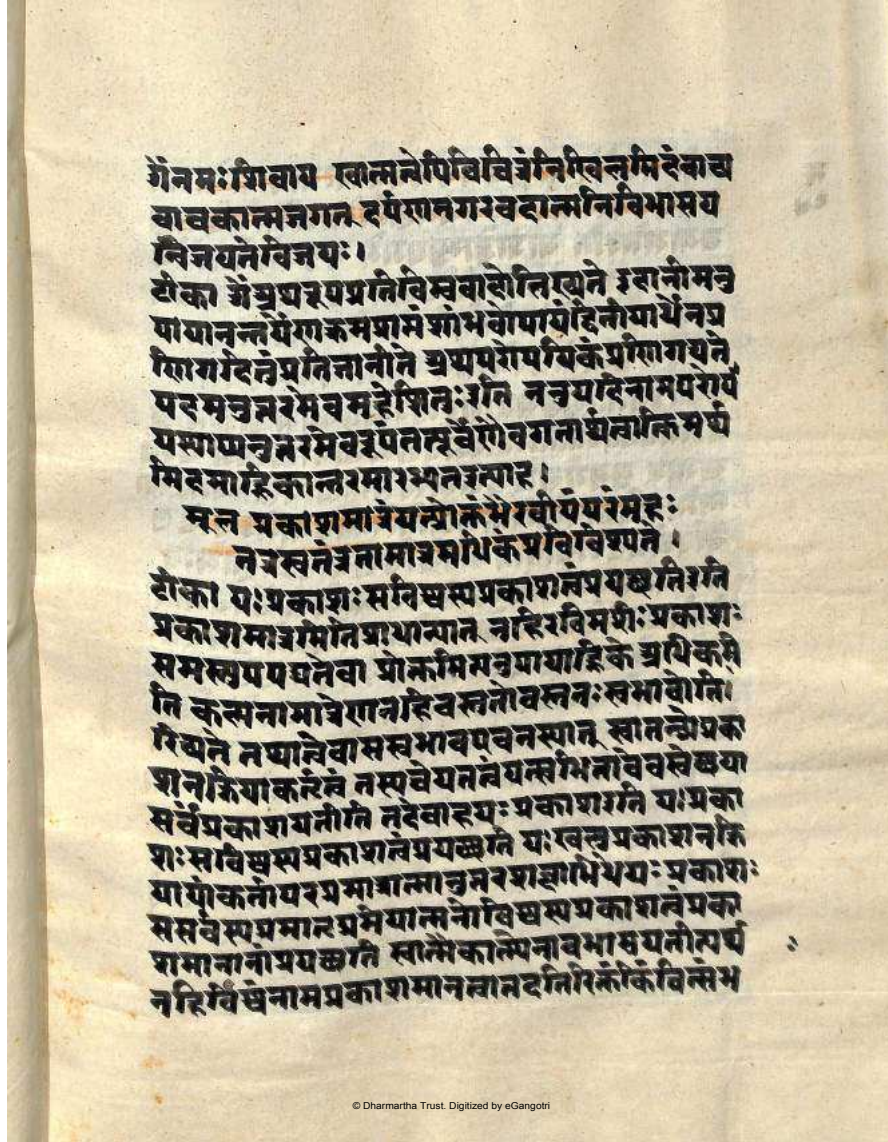 ॐ नमः शिवाय स्वात्मन्येपिविचित्रंनिखिलमिदंवाच्य
वाचकात्मजगत् दर्पणनगरवदात्मनिविभासय
न्विजयतेविजयः।
टीका ॐ अथ प्रतिविम्बवादोल्लिख्यते इदानीमनु
पायानन्तर्यणक्रमप्राप्तंशांभवोपायंद्वितीयार्धेनप्र
णिगदितुंप्रतिजानीते अथपरोपयिकंप्रणिगद्यते
पदमनुत्तरमेवमहेशितुः इति ननुयदिनामपरोप
यस्याप्यनुत्तरमेवरूपंतत्पूर्वेणैवगतार्थत्वात्किमर्थ
मिदमाह्निकान्तरमारभ्यतइत्याह।
मूल प्रकाशमात्रंयत्प्रोक्तंभैरवीयंपरंमहः
तत्रस्वतंत्रतामात्रमधिकंप्रविविच्यते।
टीका यःप्रकाशःसविश्वस्यप्रकाशत्वंप्रयच्छतिइति
प्रकाशमात्रमितिप्राधान्यात् नहिरविमर्शःप्रकाशः
समस्त्युपपद्यतेवा प्रोक्तमिमनुपायाह्निके अधिकमि
ति कल्पनामात्रेणनहिवस्तुतोवस्तुनःस्वभावोति
रिच्यते तथात्वेवासस्वभावएवनस्यात् स्वातन्त्र्यंप्रका
शनक्रियाकर्तृत्वं तस्यचेयतत्त्वंयत्स्वभित्तावेवस्वेच्छया
सर्वंप्रकाशयतीति तदेवाहयःप्रकाशइति यःप्रका
शःसविश्वस्यप्रकाशत्वंप्रयच्छति यःखलुप्रकाशनक्रि
यायांकर्तापरप्रमात्रात्मानुत्तरशब्दाभिधेयः प्रकाशः
ससर्वस्यप्रमातृप्रमेयात्मनोविश्वस्यप्रकाशत्वंप्रका
शमानानांप्रयच्छति स्वात्मैकात्म्येनावभासयतीत्यर्थ
नहिविश्वंनामप्रकाशमानत्वात्तदतिरिक्तंकिंचित्संभ
© Dharmartha Trust. Digitized by eGangotri